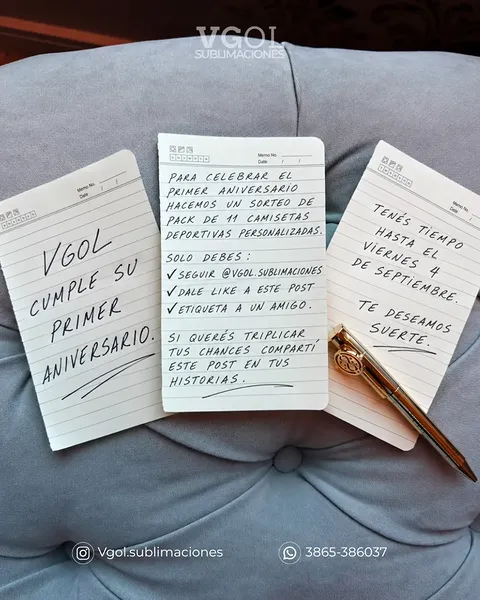 VGOL
SUBLIMACIONES
Memo No.
Date / /
VGOL
CUMPLE SU
PRIMER
ANIVERSARIO.
Memo No.
Date / /
PARA CELEBRAR EL
PRIMER ANIVERSARIO
HACEMOS UN SORTEO DE
PACK DE 11 CAMISETAS
DEPORTIVAS PERSONALIZADAS.
SOLO DEBES:
✓SEGUIR @VGOL.SUBLIMACIONES
✓DALE LIKE A ESTE POST
✓ETIQUETA A UN AMIGO.
SI QUERÉS TRIPLICAR
TUS CHANCES COMPARTÍ
ESTE POST EN TUS
HISTORIAS.
Memo No.
Date
TENÉS TIEMPO
HASTA EL
VIERNES 4
DE SEPTIEMBRE.
TE DESEAMOS
SUERTE.
Vgol.sublimaciones
3865-386037